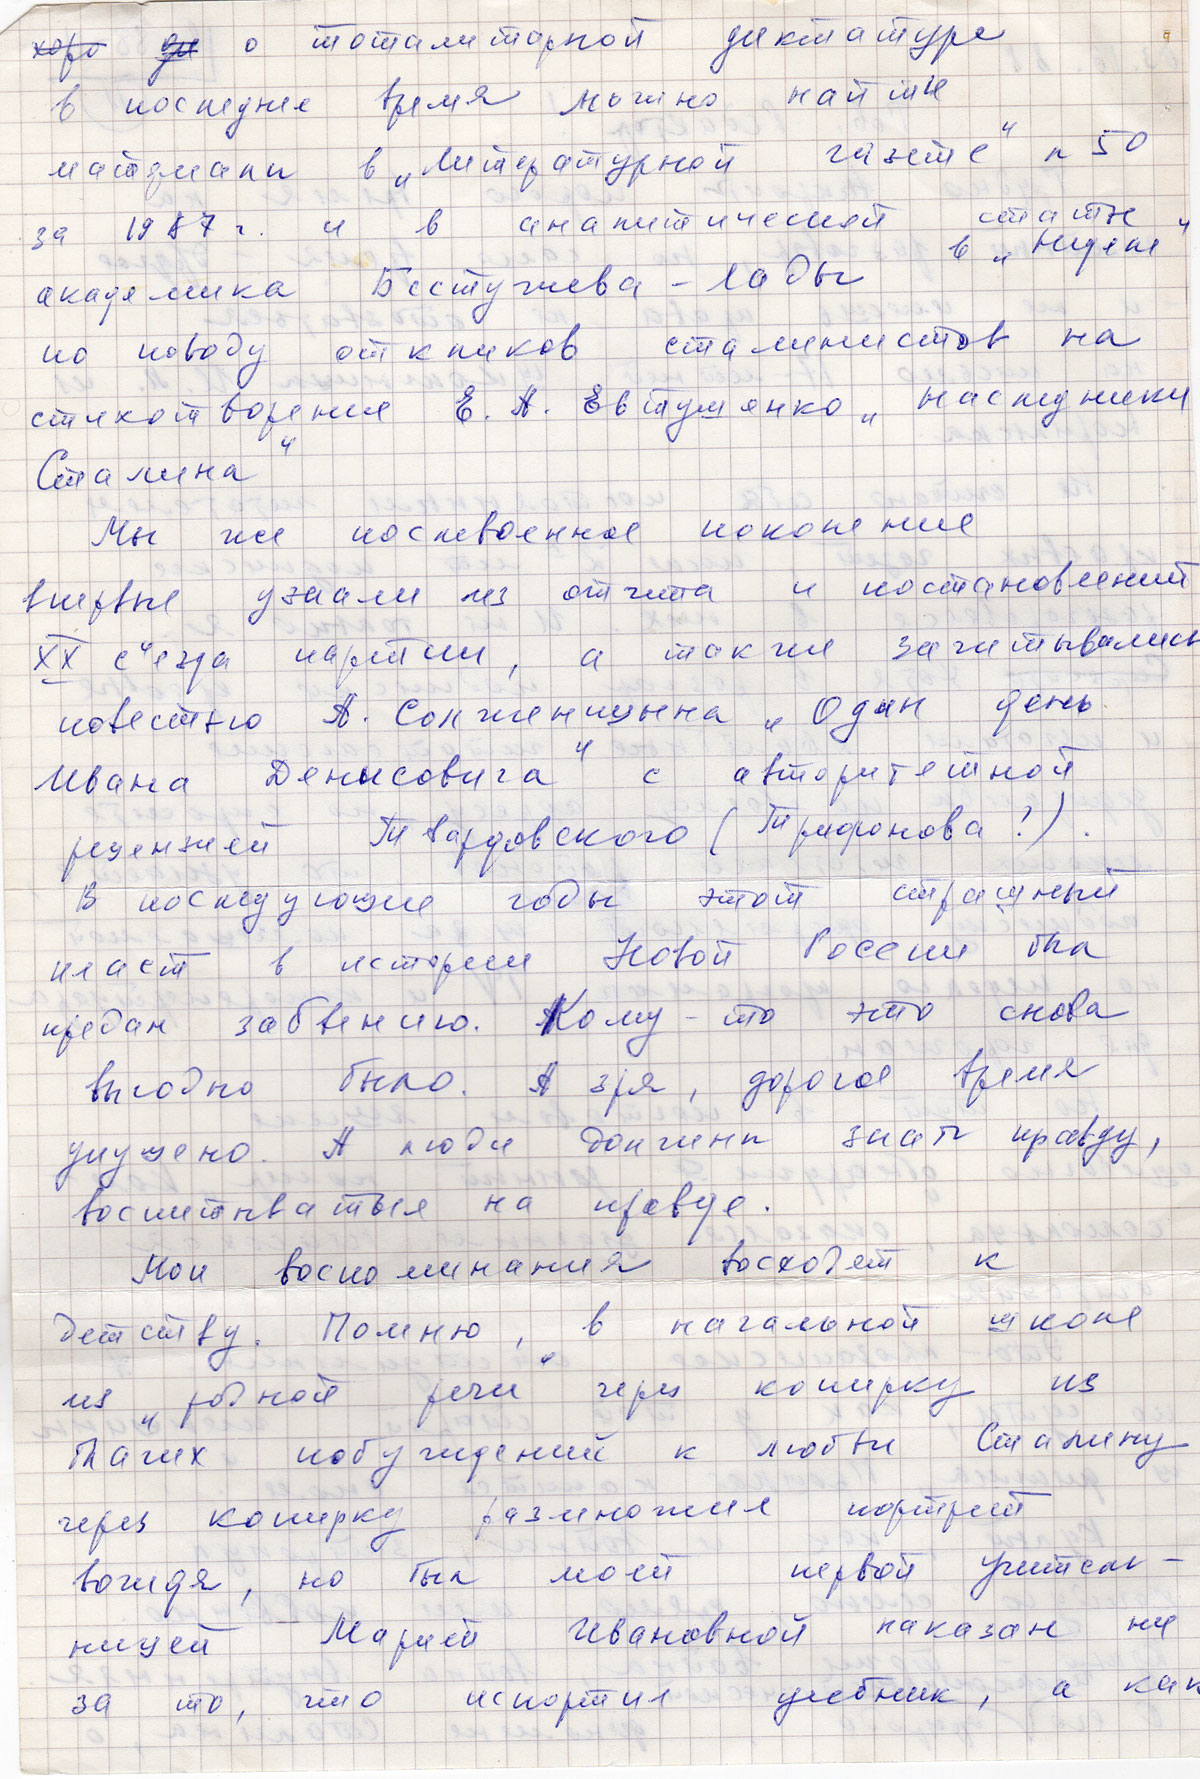 о тоталитарной диктатуре
в последнее время можно найти
материалы в „Литературной газете“ № 50
за 1987 г. и в аналитической статье
в „Неделе“
академика Бестужева-Лады
по поводу откликов сталинистов на
стихотворение Е. А. Евтушенко „Наследники
Сталина“
Мы же послевоенное поколение
впервые узнали из отчета и постановлений
XX с"езда партии, а также зачитывались
повестью А. Солженицына „Один день
Ивана Денисовича“ с авторитетной
рецензией Твардовского (Трифонова?).
В последующие годы этот страшный
пласт в истории Новой России был
предан забвению. Кому-то это снова
выгодно было. А зря, дорогое время
упущено. А люди должны знать правду,
воспитываться на правде.
Мои воспоминания восходят к
детству. Помню, в начальной школе
из „родной речи“ через копирку из
благих побуждений к любви Сталину
через копирку размножил портрет
вождя, но был моей первой учитель-
ницей Марией Ивановной наказан не
за то, что испортил учебник, а как